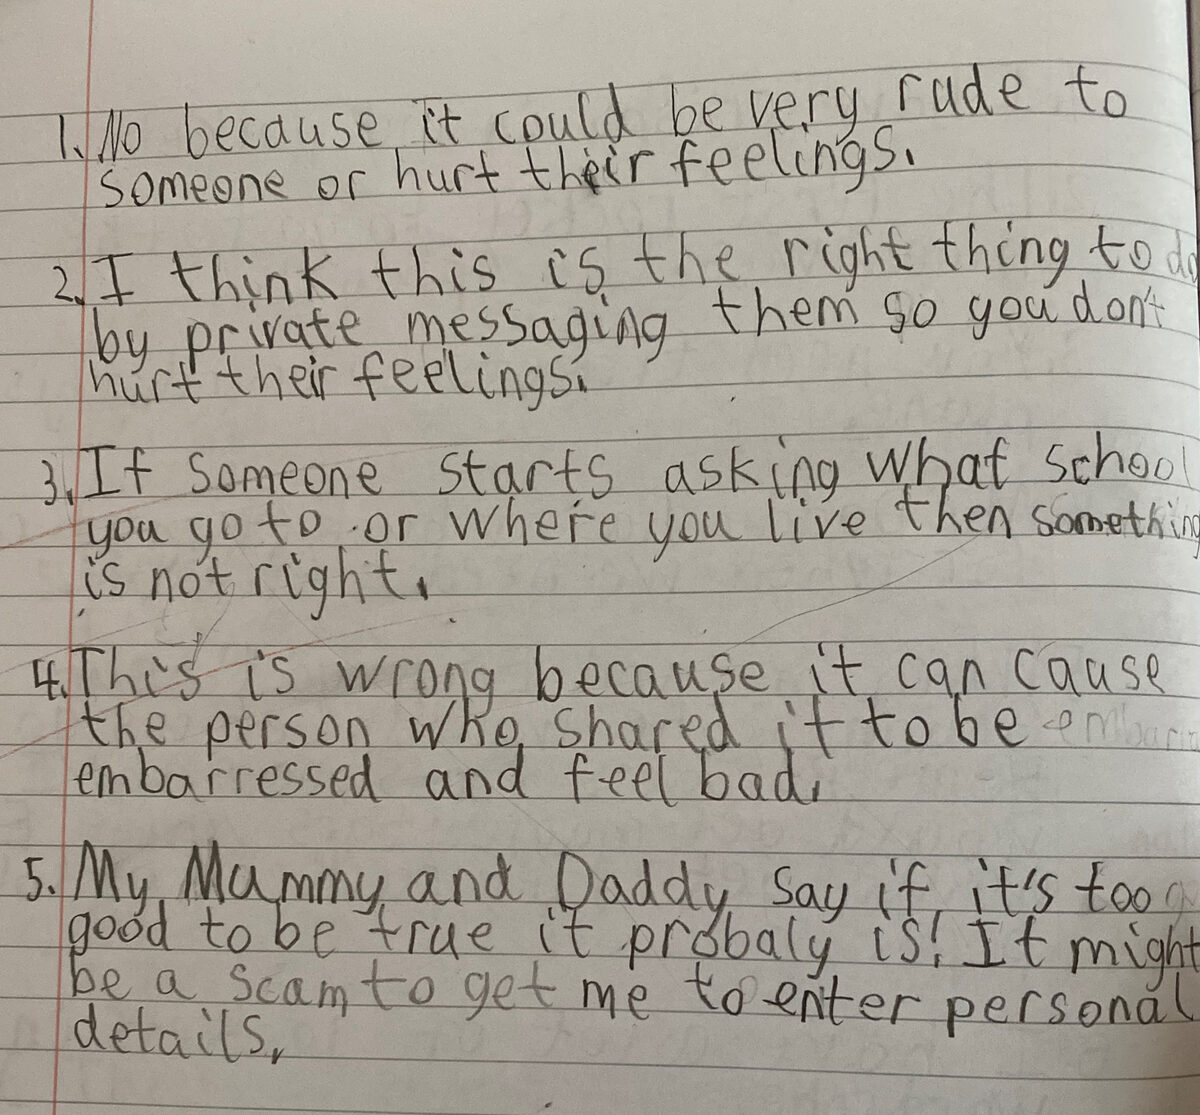 1. No because it could be very rude to
someone or hurt their feelings.
2. I think this is the right thing to do
by private messaging them so you don't
hurt their feelings.
3. If someone starts asking what school
you go to or where you live then something
is not right.
4. This is wrong because it can cause
the person who shared it to be
embarressed and feel bad.
5. My Mummy and Daddy say if it's too
good to be true it probaly is! It might
be a scam to get me to enter personal
details.